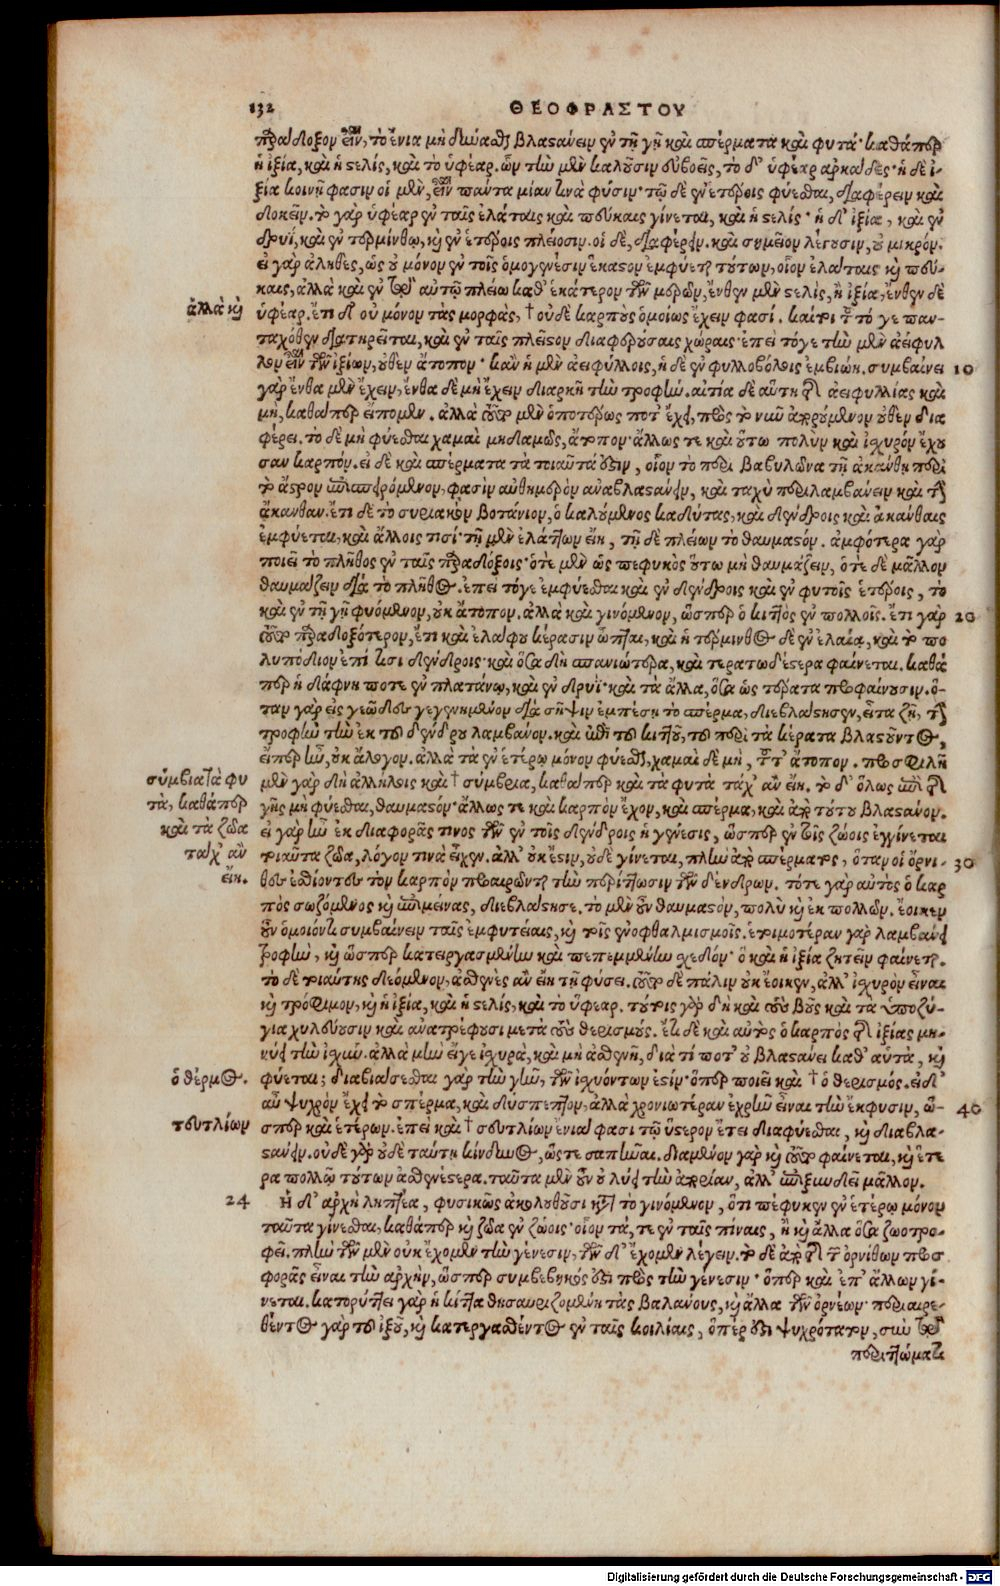 132 ΘΕΟΦΡΑΣΤΟΥ
παράδοξον εἶναι, τὸ ἔνια μὴ δύναϑαι βλαϛάνειν ἐν τῇ γῇ καὶ σπέρματα καὶ φυτά· καθάπερ
ἡ ἰξία, καὶ ἡ ϛελὶς, καὶ τὸ ὑφέαρ. ὧν τὴν μὲν καλοῦσιν εὐβοεῖς, τὸ δ' ὑφέαρ ἀρκάδες· ἡ δὲ ἰ-
ξία κοινή φασιν οἱ μὲν, εἶναι πάντα μίαν τινὰ φύσιν· τῷ δὲ ἐν ἑτέροις φύεϑαι, διαφέρειν καὶ
δοκεῖν. τὸ γὰρ ὑφέαρ ἐν ταῖς ἐλάταις καὶ πεύκαις γίνεται, καὶ ἡ ϛελίς· ἡ δ' ἰξία, καὶ ἐν
δρυῒ, καὶ ἐν τερμίνθῳ, κ ἐν ἑτέροις πλείοσιν. οἱ δὲ, διαφέρειν. καὶ σημεῖον λέγουσιν, οὐ μικρόν.
εἰ γὰρ ἀληθὲς, ὡς οὐ μόνον ἐν τοῖς ὁμογενέσιν ἕκαϛον ἐμφύεται τούτων, οἷον ἐλάταις κ πεύ-
καις, ἀλλὰ καὶ ἐν τῷ αὐτῷ πλείω καθ' ἑκάτερον τῶν μερῶν, ἔνθεν μὲν ϛελὶς, ἢ ἰξία, ἔνθεν δὲ
ἀλλὰ κ
ὑφέαρ. ἔτι δ' οὐ μόνον τὰς μορφὰς, † οὐδὲ καρποὺς ὁμοίως ἔχειν φασί. καίτοι τό γε παν-
ταχόθεν διατηρεῖται, καὶ ἐν ταῖς πλεῖϛον διαφερούσαις χώραις· ἐπεὶ τόγε τὴν μὲν ἀείφυλ
λον εἶναι τῶν ἰξίων, οὐθὲν ἄτοπον· κἂν ἡ μὲν ἀειφύλλοις, ἡ δὲ ἐν φυλλοβόλοις ἐμβιώῃ. συμβαίνει 10
γὰρ ἔνθα μὲν ἔχειν, ἔνθα δὲ μὴ ἔχειν διαρκῆ τὴν τροφήν. αἰτία δὲ αὕτη τῆς ἀειφυλλίας καὶ
μὴ, καθάπερ εἴπομεν. ἀλλὰ τοῦτο μὲν ὁποτέρως ποτ' ἔχει, πρὸς τὸ νῦν ἀπορούμενον οὐθὲν δια
φέρει. τὸ δὲ μὴ φύεϑαι χαμαὶ μηδαμῶς, ἄτοπον· ἄλλως τε καὶ οὕτω πολὺν καὶ ἰχυρὸν ἔχου
σαν καρπόν. εἰ δὲ καὶ σπέρματα τὰ τοιαῦτά ἐϛιν, οἷον τὸ περὶ βαβυλῶνα τῇ ἀκάνθῃ περὶ
τὸ ἄϛρον ἐπισπειρόμενον, φασὶν αὐθημερὸν ἀναβλαϛάνειν, καὶ ταχὺ περιλαμβάνειν καὶ τὴν
ἄκανθαν. ἔτι δὲ τὸ συριακὸν βοτάνιον, ὁ καλούμενος καδύτας, καὶ δένδροις καὶ ἀκάνθαις
ἐμφύεται, καὶ ἄλλοις τισί· τῇ μὲν ἐλάττων εἴη, τῇ δὲ πλείων τὸ θαυμαϛόν. ἀμφότερα γὰρ
ποιεῖ τὸ πλῆθος ἐν ταῖς παραδόξοις· ὁτὲ μὲν ὡς πεφυκὸς οὕτω μὴ θαυμάζειν, ὁτὲ δὲ μᾶλλον
θαυμάζειν διὰ τὸ πλῆθος. ἐπεὶ τόγε ἐμφύεϑαι καὶ ἐν δένδροις καὶ ἐν φυτοῖς ἑτέροις, τὸ
καὶ ἐν τῇ γῇ φυόμενον, οὐκ ἄτοπον, ἀλλὰ καὶ γινόμενον, ὥσπερ ὁ κιττὸς ἐν πολλοῖς. ἔτι γὰρ 20
τοῦτο παραδοξότερον, ἔτι καὶ ἐλάφου κέρασιν ὦπται, καὶ ἡ τέρμινθος δὲ ἐν ἐλαίᾳ, καὶ τὸ πο
λυπόδιον ἐπί τισι δένδροις· καὶ ὅσα δὴ σπανιώτερα, καὶ τερατωδέϛερα φαίνεται. καθά
περ ἡ δάφνη ποτε ἐν πλατάνῳ, καὶ ἐν δρυῒ· καὶ τὰ ἄλλα, ὅσα ὡς τέρατα προφαίνουσιν. ὅ-
ταν γὰρ εἰς γεῶδες γεγενημένον διὰ σῆψιν ἐμπέσῃ τὸ σπέρμα, διεβλάϛησεν, εἶτα ζῇ, τὴν
τροφὴν τὴν ἐκ τοῦ δένδρου λαμβάνον. καὶ ἐπὶ τοῦ κιττοῦ, τοῦ περὶ τὰ κέρατα βλαϛοῦντος,
εἴπερ ἦν, οὐκ ἄλογον. ἀλλὰ τὰ ἐν ἑτέρῳ μόνον φύεϑαι, χαμαὶ δὲ μὴ, τοῦτ' ἄτοπον. προσφιλῆ
σύμβια τὰ φυ
τὰ, καθάπερ
καὶ τὰ ζῶα
τάχ' ἂν
εἴη.
μὲν γὰρ δὴ ἀλλήλοις καὶ † σύμβια, καθάπερ καὶ τὰ φυτὰ τάχ' ἂν εἴη. τὸ δ' ὅλως ἐπὶ τῆς
γῆς μὴ φύεϑαι, θαυμαϛόν· ἄλλως τε καὶ καρπὸν ἔχον, καὶ σπέρμα, καὶ ἀπὸ τούτου βλαϛάνον.
εἰ γὰρ ἦν ἐκ διαφορᾶς τινος τῶν ἐν τοῖς δένδροις ἡ γένεσις, ὥσπερ ἐν τοῖς ζώοις ἐγγίνεται
τοιαῦτα ζῶα, λόγον τινὰ εἶχεν. ἀλλ' οὐκ ἔϛιν, οὐδὲ γίνεται, πλὴν ἀπὸ σπέρματος, ὅταν οἱ ὄρνι- 30
θες ἐϑίοντες τὸν καρπὸν προαιρῶνται τὴν περίττωσιν τῶν δένδρων. τότε γὰρ αὐτὸς ὁ καρ
πὸς σωζόμενος κ ἐπιμείνας, διεβλάϛησε. τὸ μὲν οὖν θαυμαϛὸν, πολὺ κ ἐκ πολλῶν. ἔοικεν
οὖν ὁμοιόν τι συμβαίνειν ταῖς ἐμφυτείαις, κ τοῖς ἐνοφθαλμισμοῖς. ἑτοιμοτέραν γὰρ λαμβάνει
τροφὴν, κ ὥσπερ κατειργασμένην καὶ πεπεμμένην χεδόν· ὃ καὶ ἡ ἰξία ζητεῖν φαίνεται.
τὸ δὲ τοιαύτης δεόμενον, ἀϑενὲς ἂν εἴη τῇ φύσει. τοῦτο δὲ πάλιν οὐκ ἔοικεν, ἀλλ' ἰχυρὸν εἶναι
κ τρόφιμον, κ ἡ ἰξία, καὶ ἡ ϛελὶς, καὶ τὸ ὕφεαρ. τούτοις γὰρ δὴ καὶ τοὺς βοῦς καὶ τὰ ὑποζύ-
για χυλεύουσιν καὶ ἀνατρέφουσι μετὰ τοὺς θερισμούς. ἔτι δὲ καὶ αὐτὸς ὁ καρπὸς τῆς ἰξίας μη-
νύει τὴν ἰχύν. ἀλλὰ μὴν εἴγε ἰχυρὰ, καὶ μὴ ἀϑενῆ, διὰ τί ποτ' οὐ βλαϛάνει καθ' αὑτὰ, κ
ὁ θέρμος.
φύεται; διαβιάσεϑαι γὰρ τὴν γῆν, τῶν ἰχυόντων ἐϛίν· ὅπερ ποιεῖ καὶ † ὁ θερισμός. εἰ δ'
αὖ ψυχρὸν ἔχει τὸ σπέρμα, καὶ δύσπεπτον, ἀλλὰ χρονιωτέραν ἐχρῆν εἶναι τὴν ἔκφυσιν, ὥ- 40
τευτλίων
σπερ καὶ ἑτέρων. ἐπεὶ καὶ † σευτλίων ἔνιά φασι τῷ ὕϛερον ἔτει διαφύεϑαι, κ διαβλα-
ϛάνειν. οὐδὲ γὰρ οὐδὲ ταύτῃ κίνδυνος, ὥςτε σαπῆναι. διαμένον γὰρ κ τοῦτο φαίνεται, κ ἕτε
ρα πολλῷ τούτων ἀϑενέϛερα. ταῦτα μὲν οὖν οὐ λύει τὴν ἀπορίαν, ἀλλ' ἐπιξυνδεῖ μᾶλλον.
24 Ἡ δ' ἀρχὴ ληπτέα, φυσικῶς ἀκολουθοῦσι κατὰ τὸ γινόμενον, ὅτι πέφυκεν ἐν ἑτέρῳ μόνον
ταῦτα γίνεϑαι, καθάπερ κ ζῶα ἐν ζώοις· οἷον τά, τε ἐν ταῖς πίναις, ἢ κ ἄλλα ὅσα ζωοτρο-
φεῖ. πλὴν τῶν μὲν οὐκ ἔχομεν τὴν γένεσιν, τῶν δ' ἔχομεν λέγειν. τὸ δὲ ἀπὸ τῆς τῶν ὀρνίθων προσ
φορᾶς εἶναι τὴν ἀρχὴν, ὥσπερ συμβεβηκός ἐϛι πρὸς τὴν γένεσιν· ὅπερ καὶ ἐπ' ἄλλων γί-
νεται. κατορύττει γὰρ ἡ κίττα θησαυριζομένη τὰς βαλάνους, κ ἄλλα τῶν ὀρνέων· περιαιρε-
θέντος γὰρ τοῦ ἰξοῦ, κ κατεργαϑέντος ἐν ταῖς κοιλίαις, ὅπέρ ἐϛι ψυχρότατον, σὺν τῷ
περιττώματι
Digitalisierung gefördert durch die Deutsche Forschungsgemeinschaft - DFG